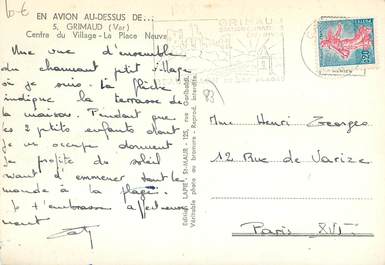 10 €
EN AVION AU-DESSUS DE...
5, GRIMAUD (Var)
Centre du Village - La Place Neuve
Une vue d'ensemble
du charmant ptit village
où je suis. La flèche
indique la terrasse de
la maison. Pendant que
les 2 petits enfants dont
je m'occupe dorment
je profite du soleil
avant d'emmener tout le
monde à la plage.
Je t'embrasse affectueuse
ment
Caty
Edition LAPIE, St-MAUR - 125, rue Garibaldi
Véritable photo au bromure - Reprod. interdite
GRIMAUD
83
0,20
Mme Henri Georges
12 Rue de Varize
Paris XVI